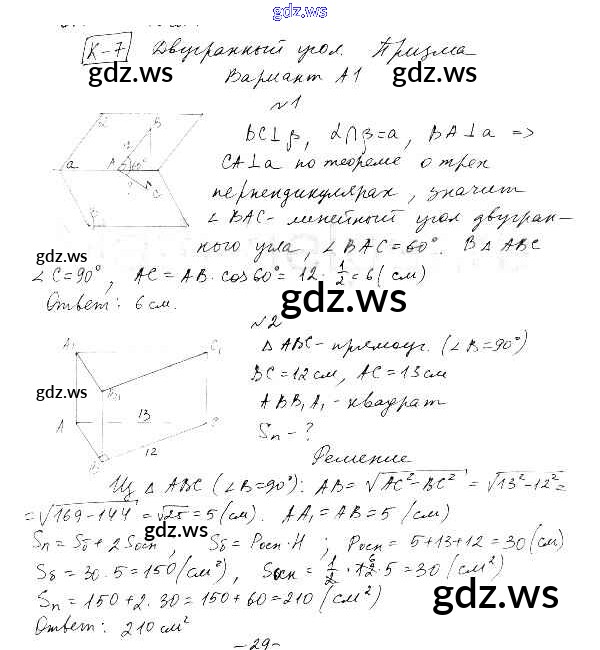 gdz.ws
К-7 Двугранный угол. Призма
gdz.ws gdz.ws
Вариант А1
№1
BC⊥β, α∩β=a, BA⊥a =>
CA⊥a по теореме о трех
перпендикулярах, значит
∠BAC - линейный угол двугран-
ного угла, ∠BAC=60°. В △ABC
∠C=90°, AC = AB·cos60° = 12·1/2 = 6 (см)
Ответ: 6 см.
a A B C 60° β
gdz.ws
gdz.ws
№2
△ABC - прямоуг. (∠B=90°)
BC=12см, AC=13см
ABB₁A₁ - квадрат
Sп - ?
A₁ C₁ B₁ A 13 12
gdz.ws
gdz.ws
Решение
Из △ABC (∠B=90°): AB = √AC²-BC² = √13²-12² =
= √169-144 = √25 = 5 (см). AA₁ = AB = 5 (см)
Sп = Sб + 2Sосн, Sб = Pосн·H; Pосн = 5+13+12 = 30 (см)
Sб = 30·5 = 150 (см²), Sосн = 1/2·12·5 = 30 (см²)
Sп = 150+2·30 = 150+60 = 210 (см²)
Ответ: 210 см²
gdz.ws
gdz.ws
gdz.ws
-29-